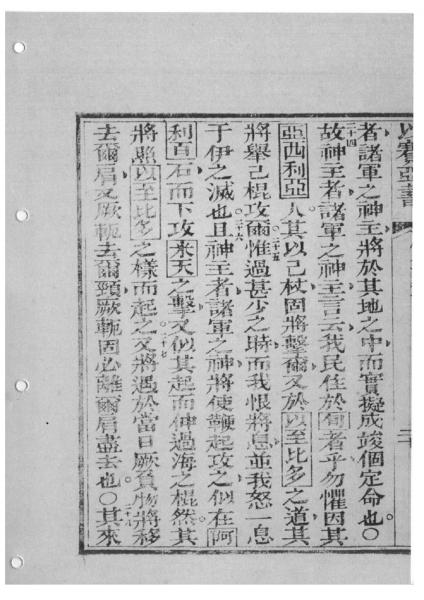 以賽亞書
者諸軍之神主將於其地之中而實擬成竣個定命也。○
二十四故神主者諸軍之神主言云我民住於旬者乎勿懼因其
亞西利亞人其以己杖固將擊爾又於以至比多之道其
將舉己棍攻爾。二十五惟過甚少之時而我恨將息並我怒一息
于伊之滅也。二十六且神主者諸軍之神將使鞭起攻之似在阿
利百石而下攻米天之擊又似其起而伸過海之棍然其
將照以至比多之樣而起之。二十七又將遇於當日厥負物將移
去爾肩又厥軛去爾頸厥軛固必離爾肩盡去也。○二十八其來